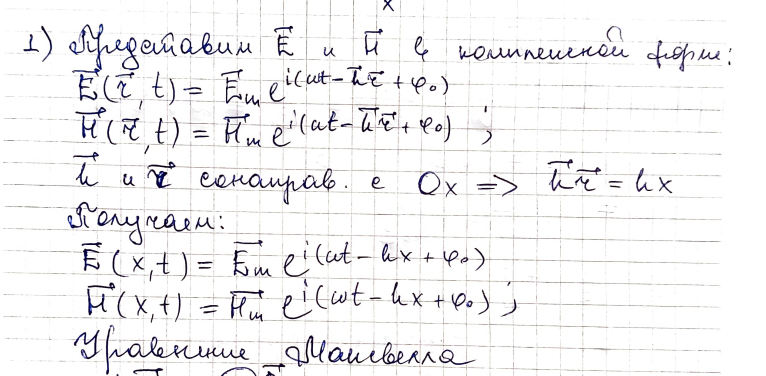 x
1) Представим E⃗ и H⃗ в комплексной форме:
E⃗(r⃗,t) = E⃗m e^i(ωt - k⃗r⃗ + φ₀)
H⃗(r⃗,t) = H⃗m e^i(ωt - k⃗r⃗ + φ₀) ;
k⃗ и r⃗ сонаправ. с Ox => k⃗r⃗ = kx
Получаем:
E⃗(x,t) = E⃗m e^i(ωt - kx + φ₀)
H⃗(x,t) = H⃗m e^i(ωt - kx + φ₀) ;
Уравнение Максвелла